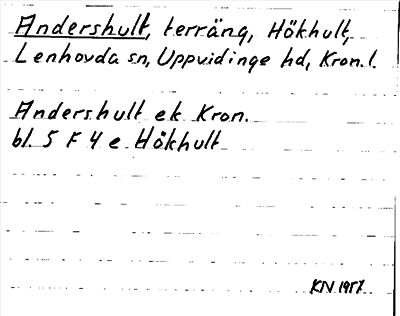 Andershult, terräng, Hökhult,
Lenhovda sn, Uppvidinge hd, Kron. l.
Andershult ek Kron.
bl. 5 F 4 e Hökhult
KN 1957